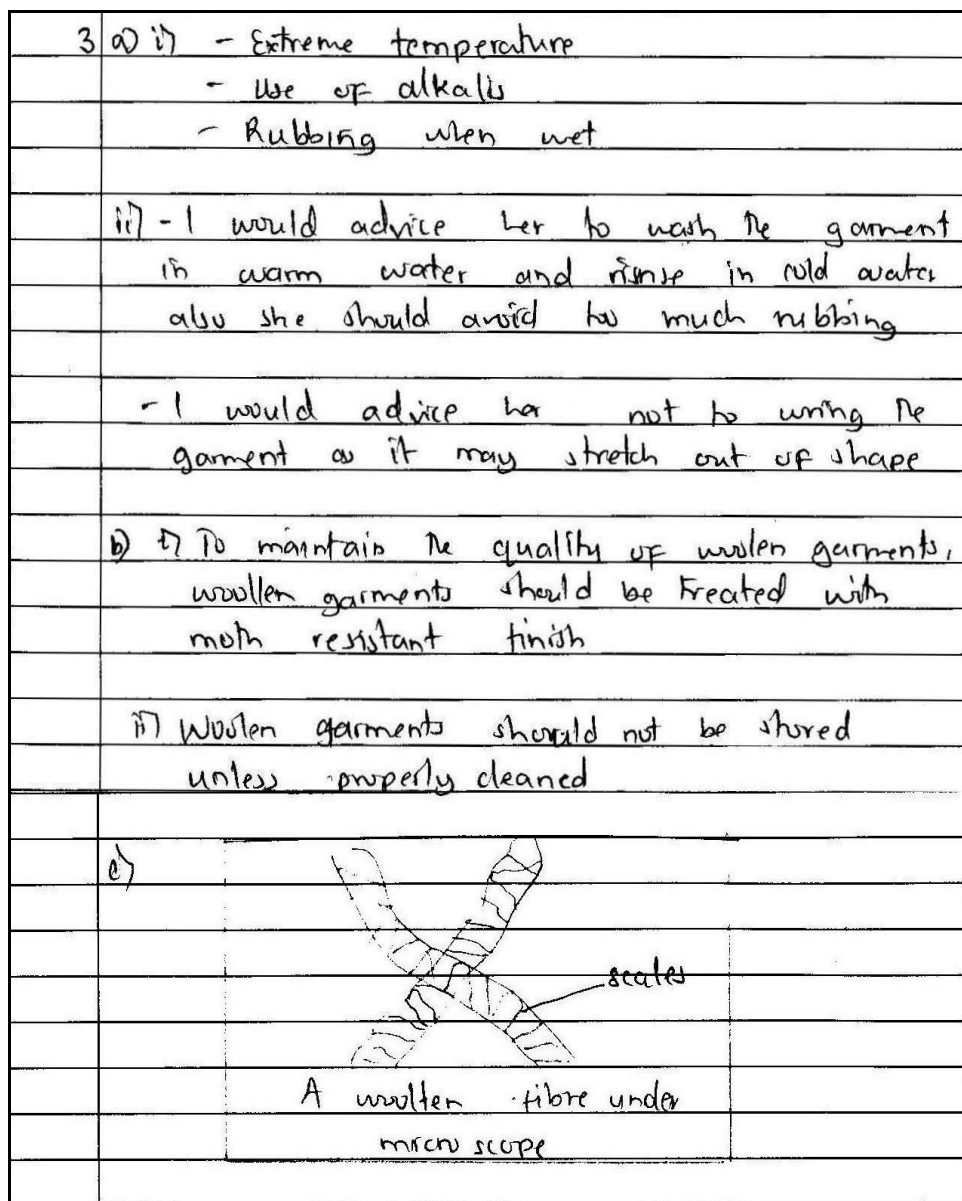 3 a) i) - Extreme temperature
- Use of alkalis
- Rubbing when wet
ii) - I would advice her to wash the garment
in warm water and rinse in cold water
also she should avoid too much rubbing
- I would advice her not to wring the
garment as it may stretch out of shape
b) i) To maintain the quality of woolen garments,
woollen garments should be treated with
moth resistant finish
ii) Woolen garments should not be stored
unless properly cleaned
c)
scales
A woollen fibre under
micro scope